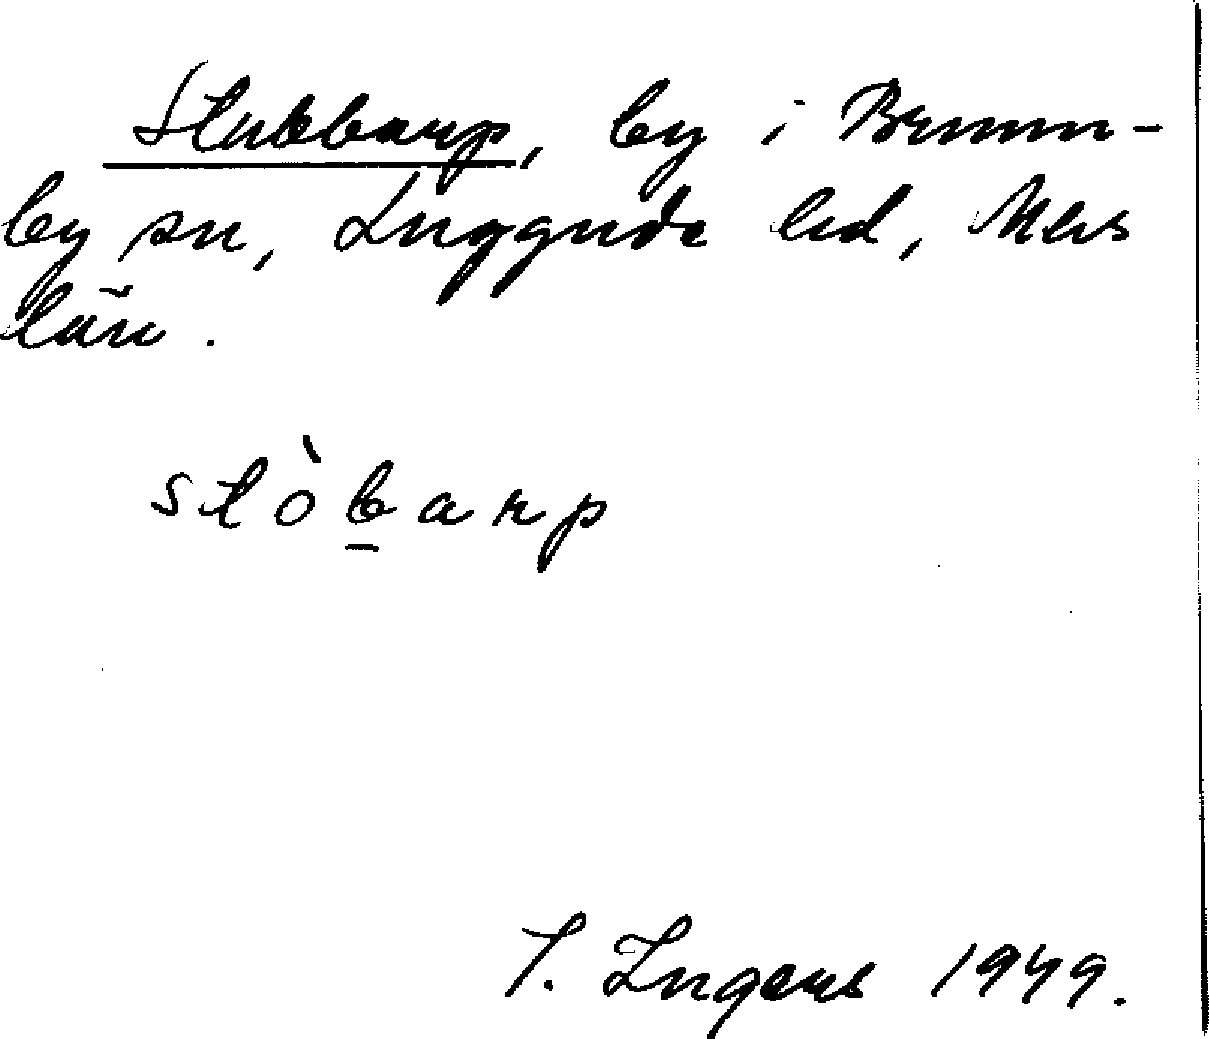 Stubbarp, by i Brunn-
by sn, Luggude hd, Mhs
län.
stòbarp
I. Ingers 1949.